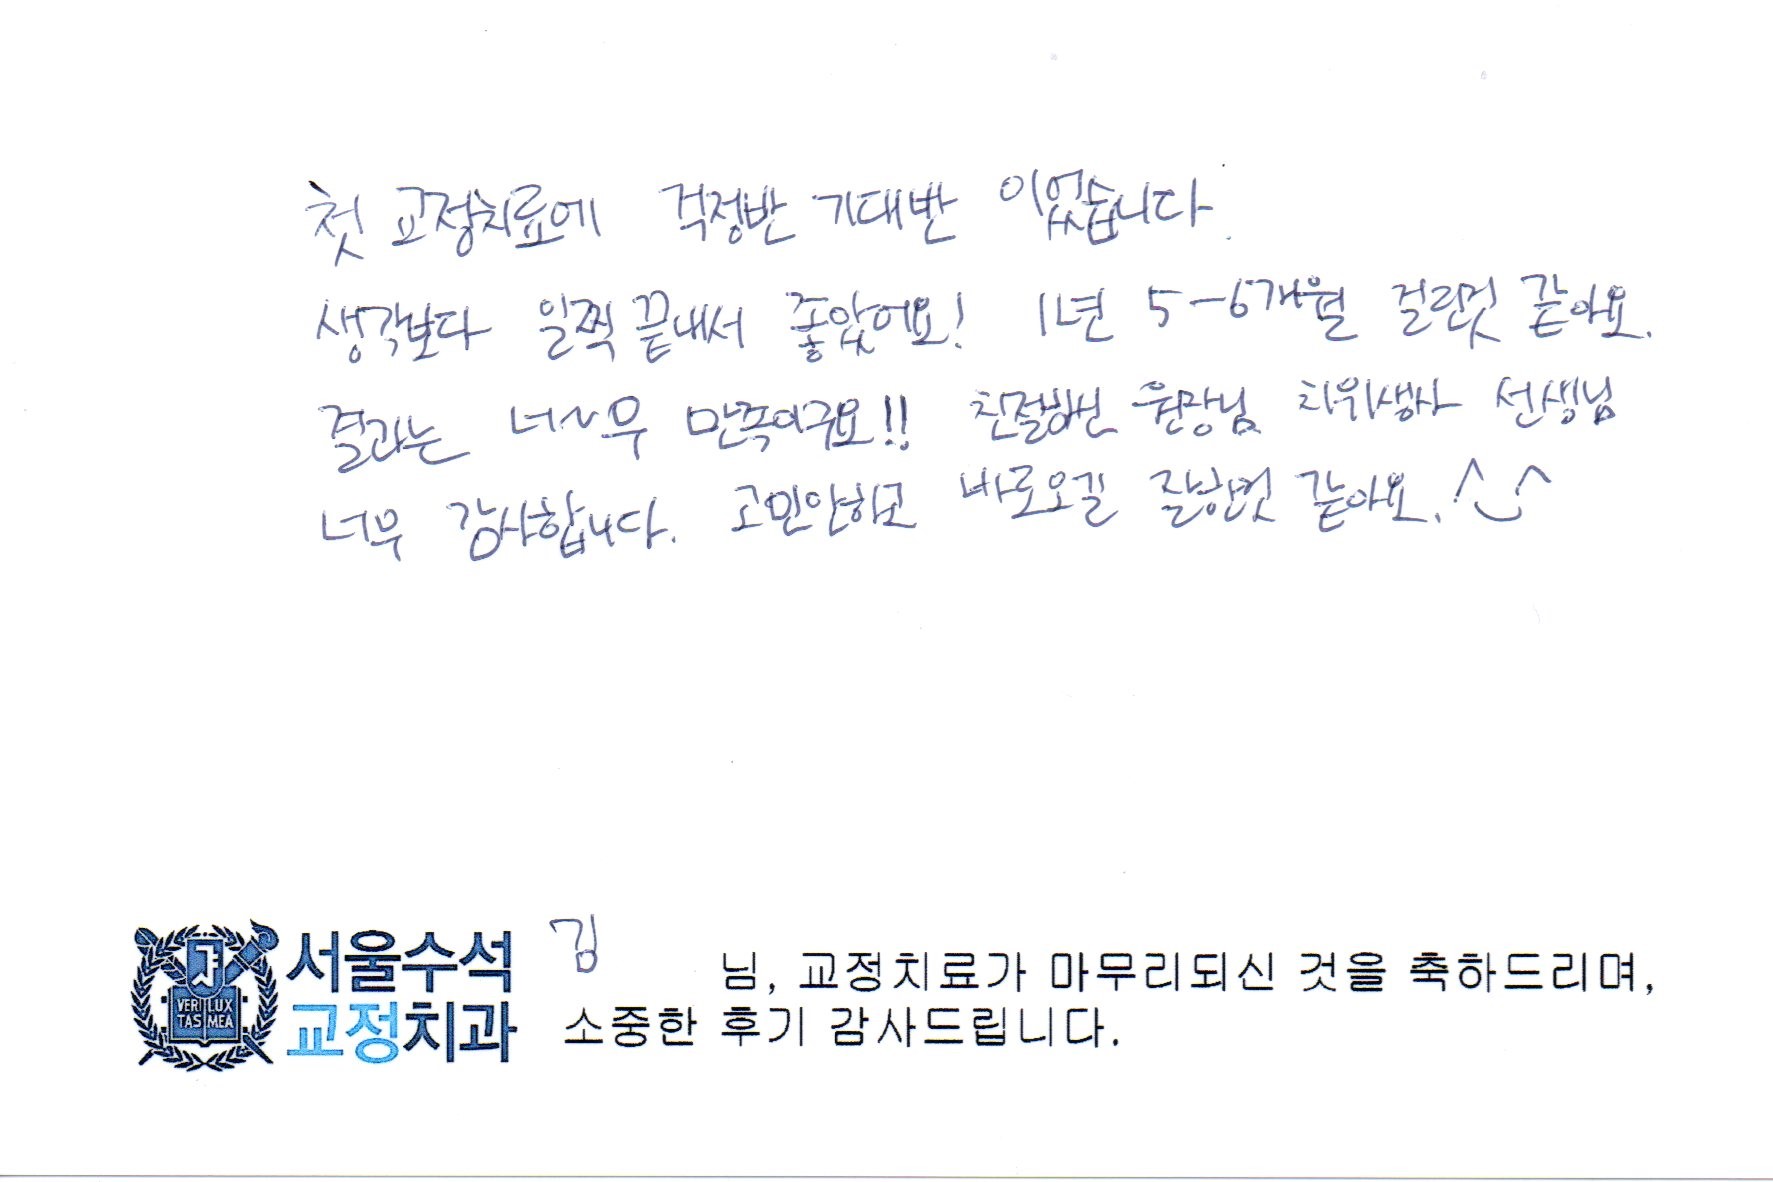 첫 교정치료에 걱정반 기대반 이었습니다.
생각보다 일찍 끝내서 좋았어요! 1년 5-6개월 걸린것 같아요.
결과는 너~무 만족이구요!! 친절하신 원장님 치위생사 선생님
너무 감사합니다. 고민안하고 바로오길 잘한것 같아요. ^_^
김
서울수석
교정치과
VERI LUX
TAS MEA
님, 교정치료가 마무리되신 것을 축하드리며,
소중한 후기 감사드립니다.